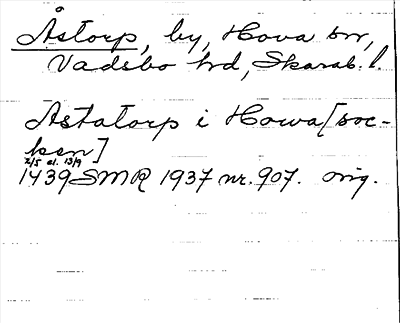 Åstorp, by, Hova sn,
Vadsbo hd, Skarab. l.
Astatorp i Howa [soc-
ken]
2/5 el. 13/9
1439 SMR 1937 nr. 907. orig.